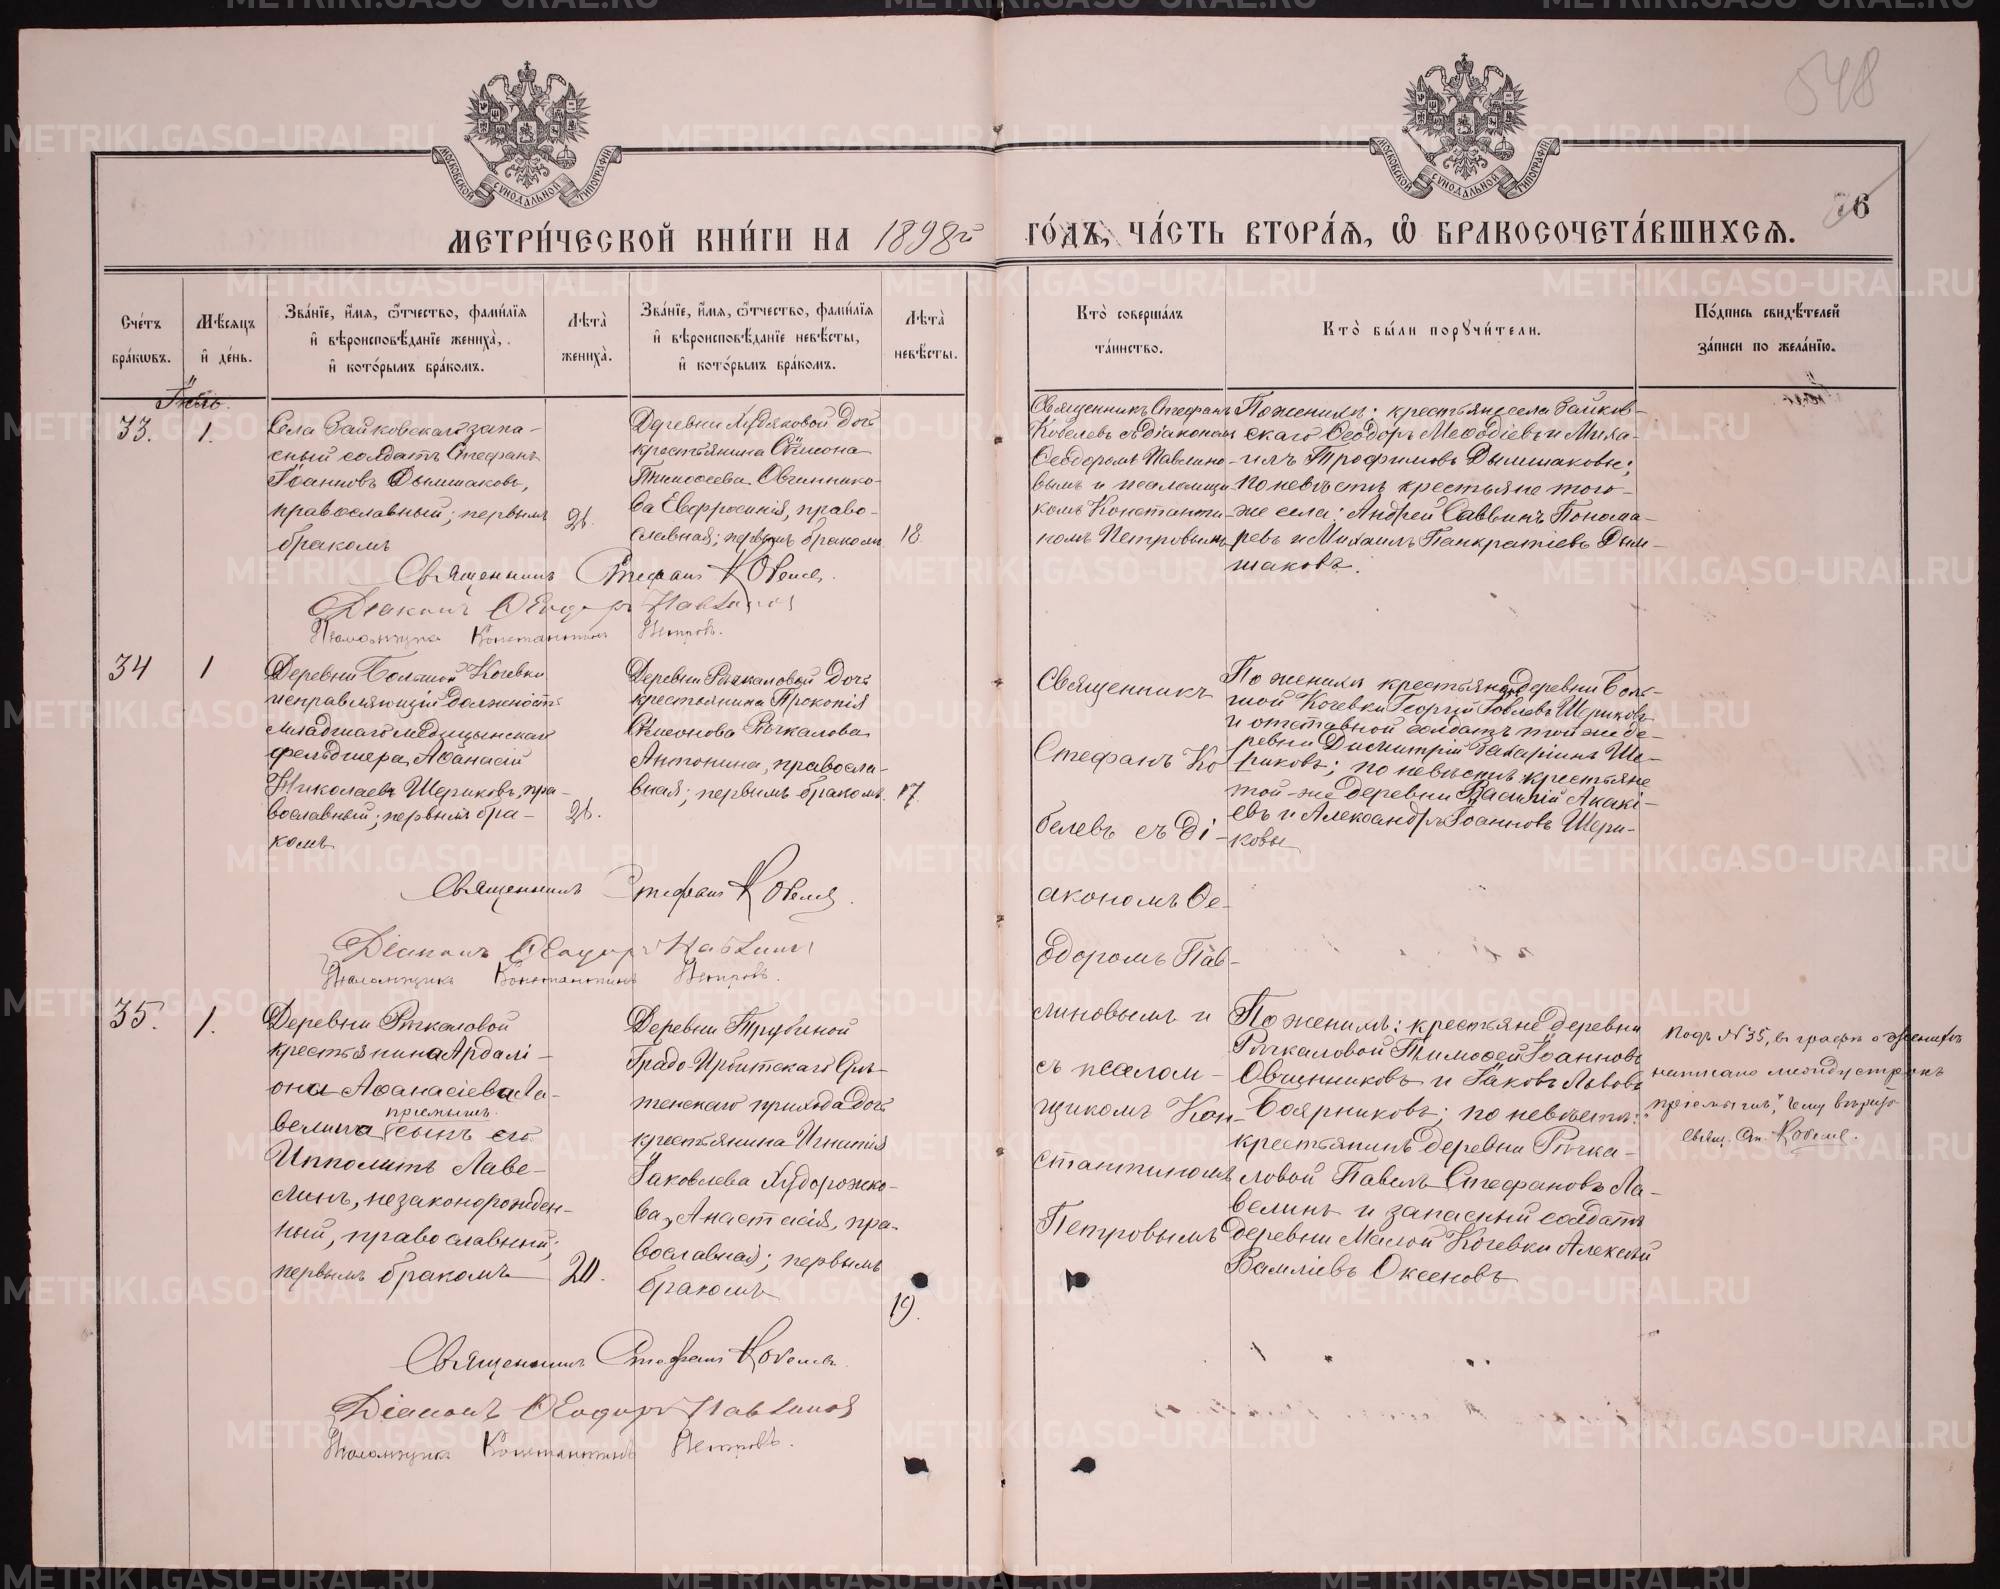 548
МОСКОВСКОЙ СѴНОДАЛЬНОЙ ТИПОГРАФІИ
МОСКОВСКОЙ СѴНОДАЛЬНОЙ ТИПОГРАФІИ
МЕТРИ́ЧЕСКОЙ КНИ́ГИ НА 1898й
ГО́ДЪ, ЧА́СТЬ ВТОРА́Ѧ, Ѡ҆ БРАКОСОЧЕТА́ВШИХСѦ.
Сче́тъ бра́кѡвъ.
Мѣ́сѧцъ и҆ де́нь.
Зва́нїе, и҆́мѧ, ѻ҆́тчество, фами́лїѧ и҆ вѣроисповѣ́данїе жениха̀, и҆ кото́рымъ бра́комъ.
Лѣ́та̀ жениха̀.
Зва́нїе, и҆́мѧ, ѻ҆́тчество, фами́лїѧ и҆ вѣроисповѣ́данїе невѣ́сты, и҆ кото́рымъ бра́комъ.
Лѣ́та̀ невѣ́сты.
Кто̀ соверша́лъ та́инство.
Кто̀ бы́ли порꙋчи́тели.
По́дпись свидѣ́телей за́писи по жела́нїю.
33.
1.
Села Зайковскаго запа-
сный солдатъ Стефанъ
Іоанновъ Дымшаковъ,
православный; первымъ
бракомъ
26.
Деревни Худяковой дочь
крестьянина Сѵмеона
Тимоѳеева Овчиннико-
ва Евфросинія, право-
славная; первымъ бракомъ.
18
Священникъ Стефанъ
Кобелевъ съ діакономъ
Ѳеодоромъ Павлино-
вымъ и псаломщи-
комъ Константи-
номъ Петровымъ
По женихѣ: крестьяне села Зайков-
скаго Ѳеодоръ Меѳодіевъ и Миха-
илъ Трофимовъ Дымшаковы;
по невѣстѣ крестьяне того-
же села: Андрей Саввинъ Понома-
ревъ и Михаилъ Панкратіевъ Дым-
шаковъ.
Священникъ Стефанъ Кобелев
Діаконъ Ѳеодоръ Павлинов
Псаломщикъ Константинъ Петровъ.
34
1
Деревни Большой Кочевки
исправляющій должность
младшаго медицынскаго
фельдшера, Аѳанасій
Николаевъ Шериковъ, пра-
вославный; первымъ бра-
комъ
26.
Деревни Речкаловой дочь
крестьянина Прокопія
Сѵмеонова Речкалова
Антонина, правосла-
вная; первымъ бракомъ.
17
Священникъ
Стефанъ Ко-
белевъ съ ді-
акономъ Ѳе-
одоромъ Пав-
линовымъ и
съ псалом-
щикомъ Кон-
стантиномъ
Петровымъ
По женихѣ крестьяне деревни Боль-
шой Кочевки Георгій Іовлевъ Шериковъ
и отставной солдатъ той же де-
ревни Димитрій Захаріинъ Ше-
риковъ; по невѣстѣ крестьяне
той-же деревни Василій Акакі-
евъ и Александръ Іоанновъ Шери-
ковы
Священникъ Стефанъ Кобелев.
Діаконъ Ѳеодоръ Павлинов
Псаломщикъ Константинъ Петровъ.
35.
1.
Деревни Речкаловой
крестьянина Ардалі-
она Аѳанасіева Ла-
пріемышъ.
велина сынъ его
Ипполитъ Лаве-
линъ, незаконорожден-
ный, православный;
первымъ бракомъ
20.
Деревни Трубиной
Градо-Ирбитскаго Срѣ-
тенскаго прихода дочь
крестьянина Игнатія
Іаковлева Худорожко-
ва, Анастасія, пра-
вославная; первымъ
бракомъ
19.
По женихѣ: крестьяне деревни
Речкаловой Тимоѳей Іоанновъ
Овчинниковъ и Іаковъ Львовъ
Боярниковъ; по невѣстѣ:
крестьянинъ деревни Речка-
ловой Павелъ Стефановъ Ла-
велинъ и запасный солдатъ
деревни Малой Кочевки Алексѣй
Оксеновъ
Подъ № 35, въ графѣ о женихѣ
написано между строкъ
"пріемышъ", чему вѣрно
Свящ. Ст. Кобелев.
Священникъ Стефанъ Кобелевъ.
Діаконъ Ѳеодоръ Павлинов
Псаломщикъ Константинъ Петровъ.
METRIKI.GASO-URAL.RU